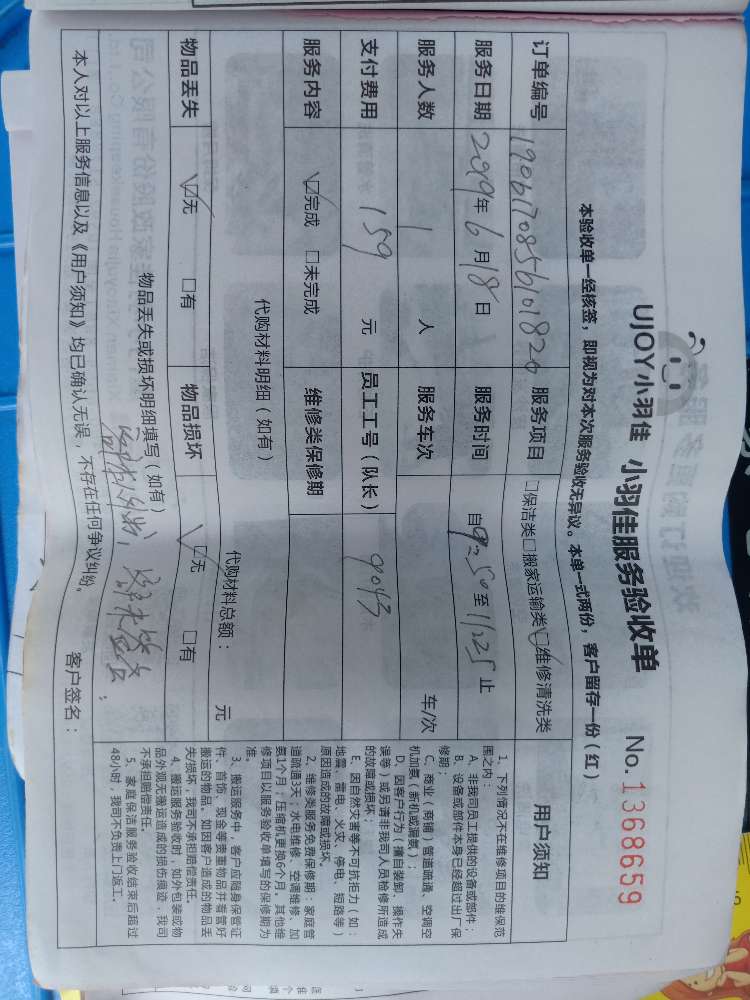 UJOY小羽佳 小羽佳服务验收单
No.1368659
本验收单一经核签，即视为对本次服务验收无异议。本单一式两份，客户留存一份（红）
订单编号 1906170856101820 服务项目 □保洁类□搬家运输类☑维修清洗类
服务日期 2019年6月18日 服务时间 自9:50至11:25止
服务人数 1 人 服务车次 车/次
支付费用 159 元 员工工号（队长） 9043
服务内容 ☑完成 □未完成 维修类保修期
代购材料明细（如有）
代购材料总额： 元
物品丢失 ☑无 □有 物品损坏 ☑无 □有
物品丢失或损坏明细填写（如有）：
本人对以上服务信息以及《用户须知》均已确认无误，不存在任何争议纠纷。 客户签名：
用户须知
1、下列情况不在维修项目的维保范
围之内：
A、非我司员工提供的设备或部件；
B、设备或部件本身已经超过出厂保
修期；
C、商业（商铺）管道疏通、空调空
机加氨（新机或漏氨）；
D、因客户行为（擅自装卸、操作失
误等）或另请非我司人员检修所造成
的故障或损坏；
E、因自然灾害等不可抗拒力（如：
地震、雷电、火灾、停电、短路等）
原因造成的故障或损坏。
2、维修类服务免费保修期：家庭管
道疏通3天；水电维修、空调维修、加
氨1个月；压缩机更换6个月。其他维
修项目以服务验收单填写的保修期为
准。
3、搬运服务中，客户应随身保管证
件、首饰、现金等贵重物品并看管好
搬运的物品。如因客户造成的物品丢
失/损坏，我司不承担赔偿责任。
4、搬运服务验收时，如外包装或物
品外观无搬运造成的损伤痕迹，我司
不承担赔偿责任。
5、家庭保洁服务验收结束后超过
48小时，我司不负责上门返工。